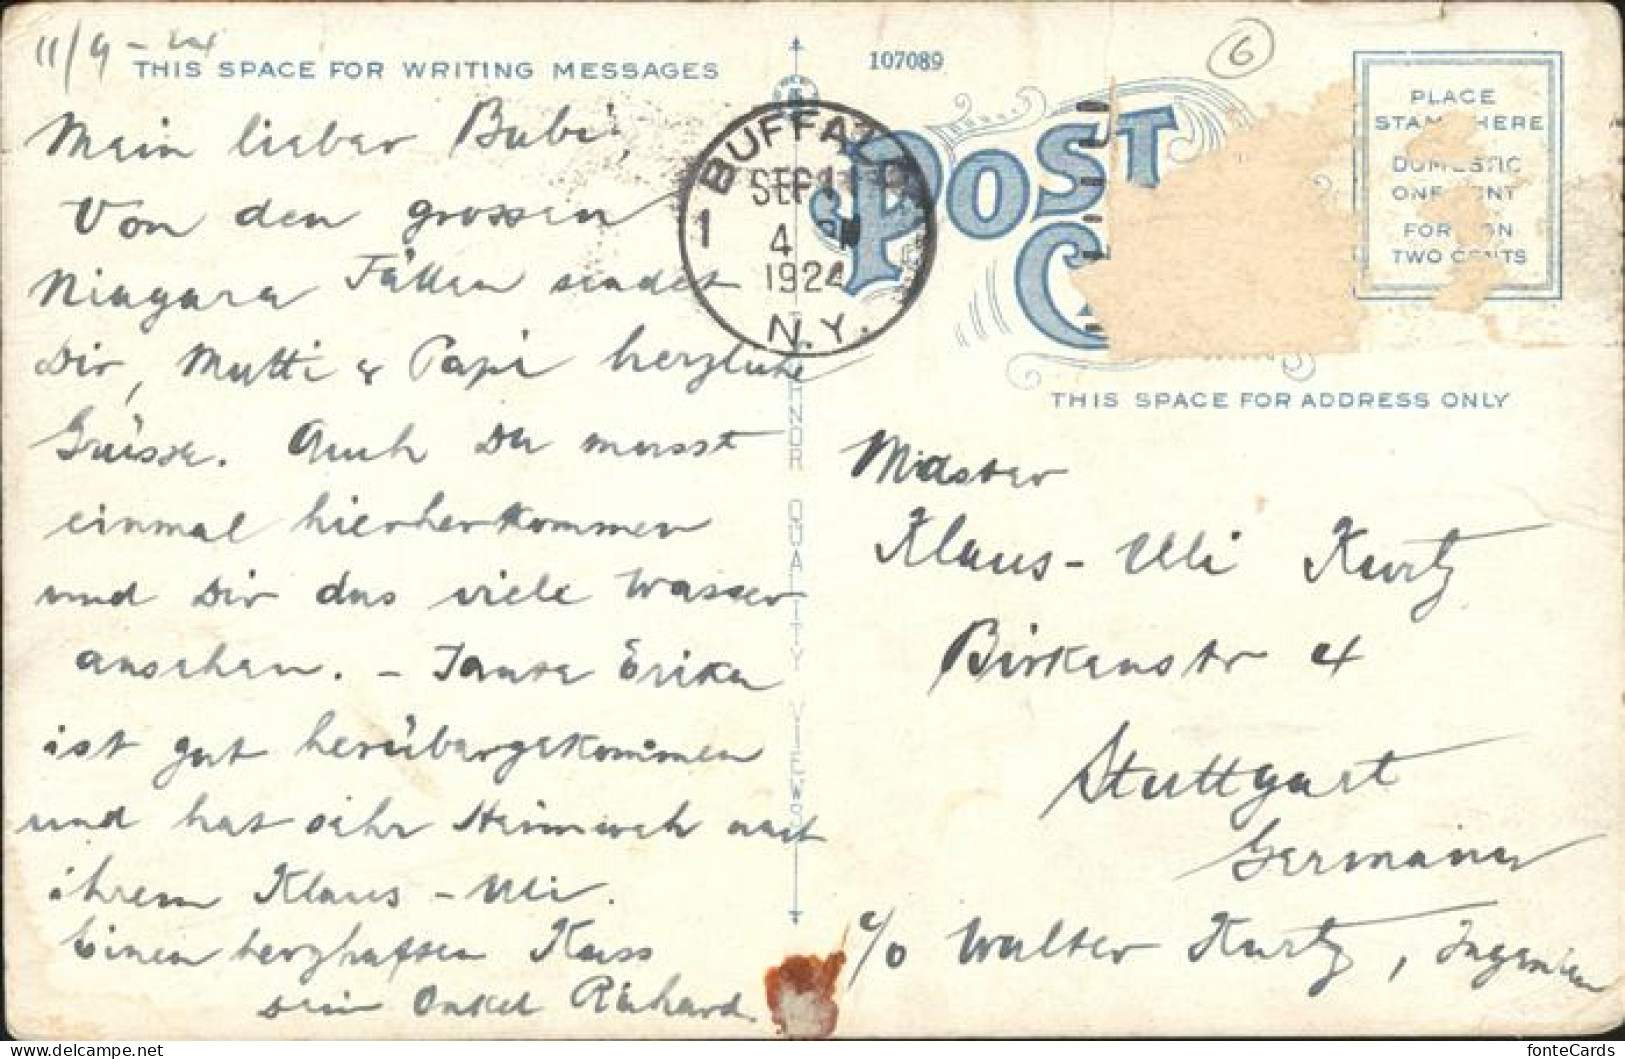 11/9 -
THIS SPACE FOR WRITING MESSAGES
Mein lieber Bubi!
Von den grossen
Niagara Fällen sendet
Dir, Mutti & Papi herzliche
Grüsse. Auch Du musst
einmal hierherkommen
und Dir das viele Wasser
ansehen. – Tante Erika
ist gut herübergekommen
und hat sehr Heimweh nach
ihrem Klaus – Uli.
Einen herzhaften Kuss
sein Onkel Richard.
BUFFALO
SEP 11
4 PM
1924
N.Y.
1
107089
6
POST
PLACE
STAMP HERE
DOMESTIC
ONE CENT
FOREIGN
TWO CENTS
THIS SPACE FOR ADDRESS ONLY
HNOR QUALITY VIEWS
Master
Klaus – Uli Kurtz
Birkenstr 4
Stuttgart
Germany
c/o Walter Kurtz, Ingenieur
fonteCards